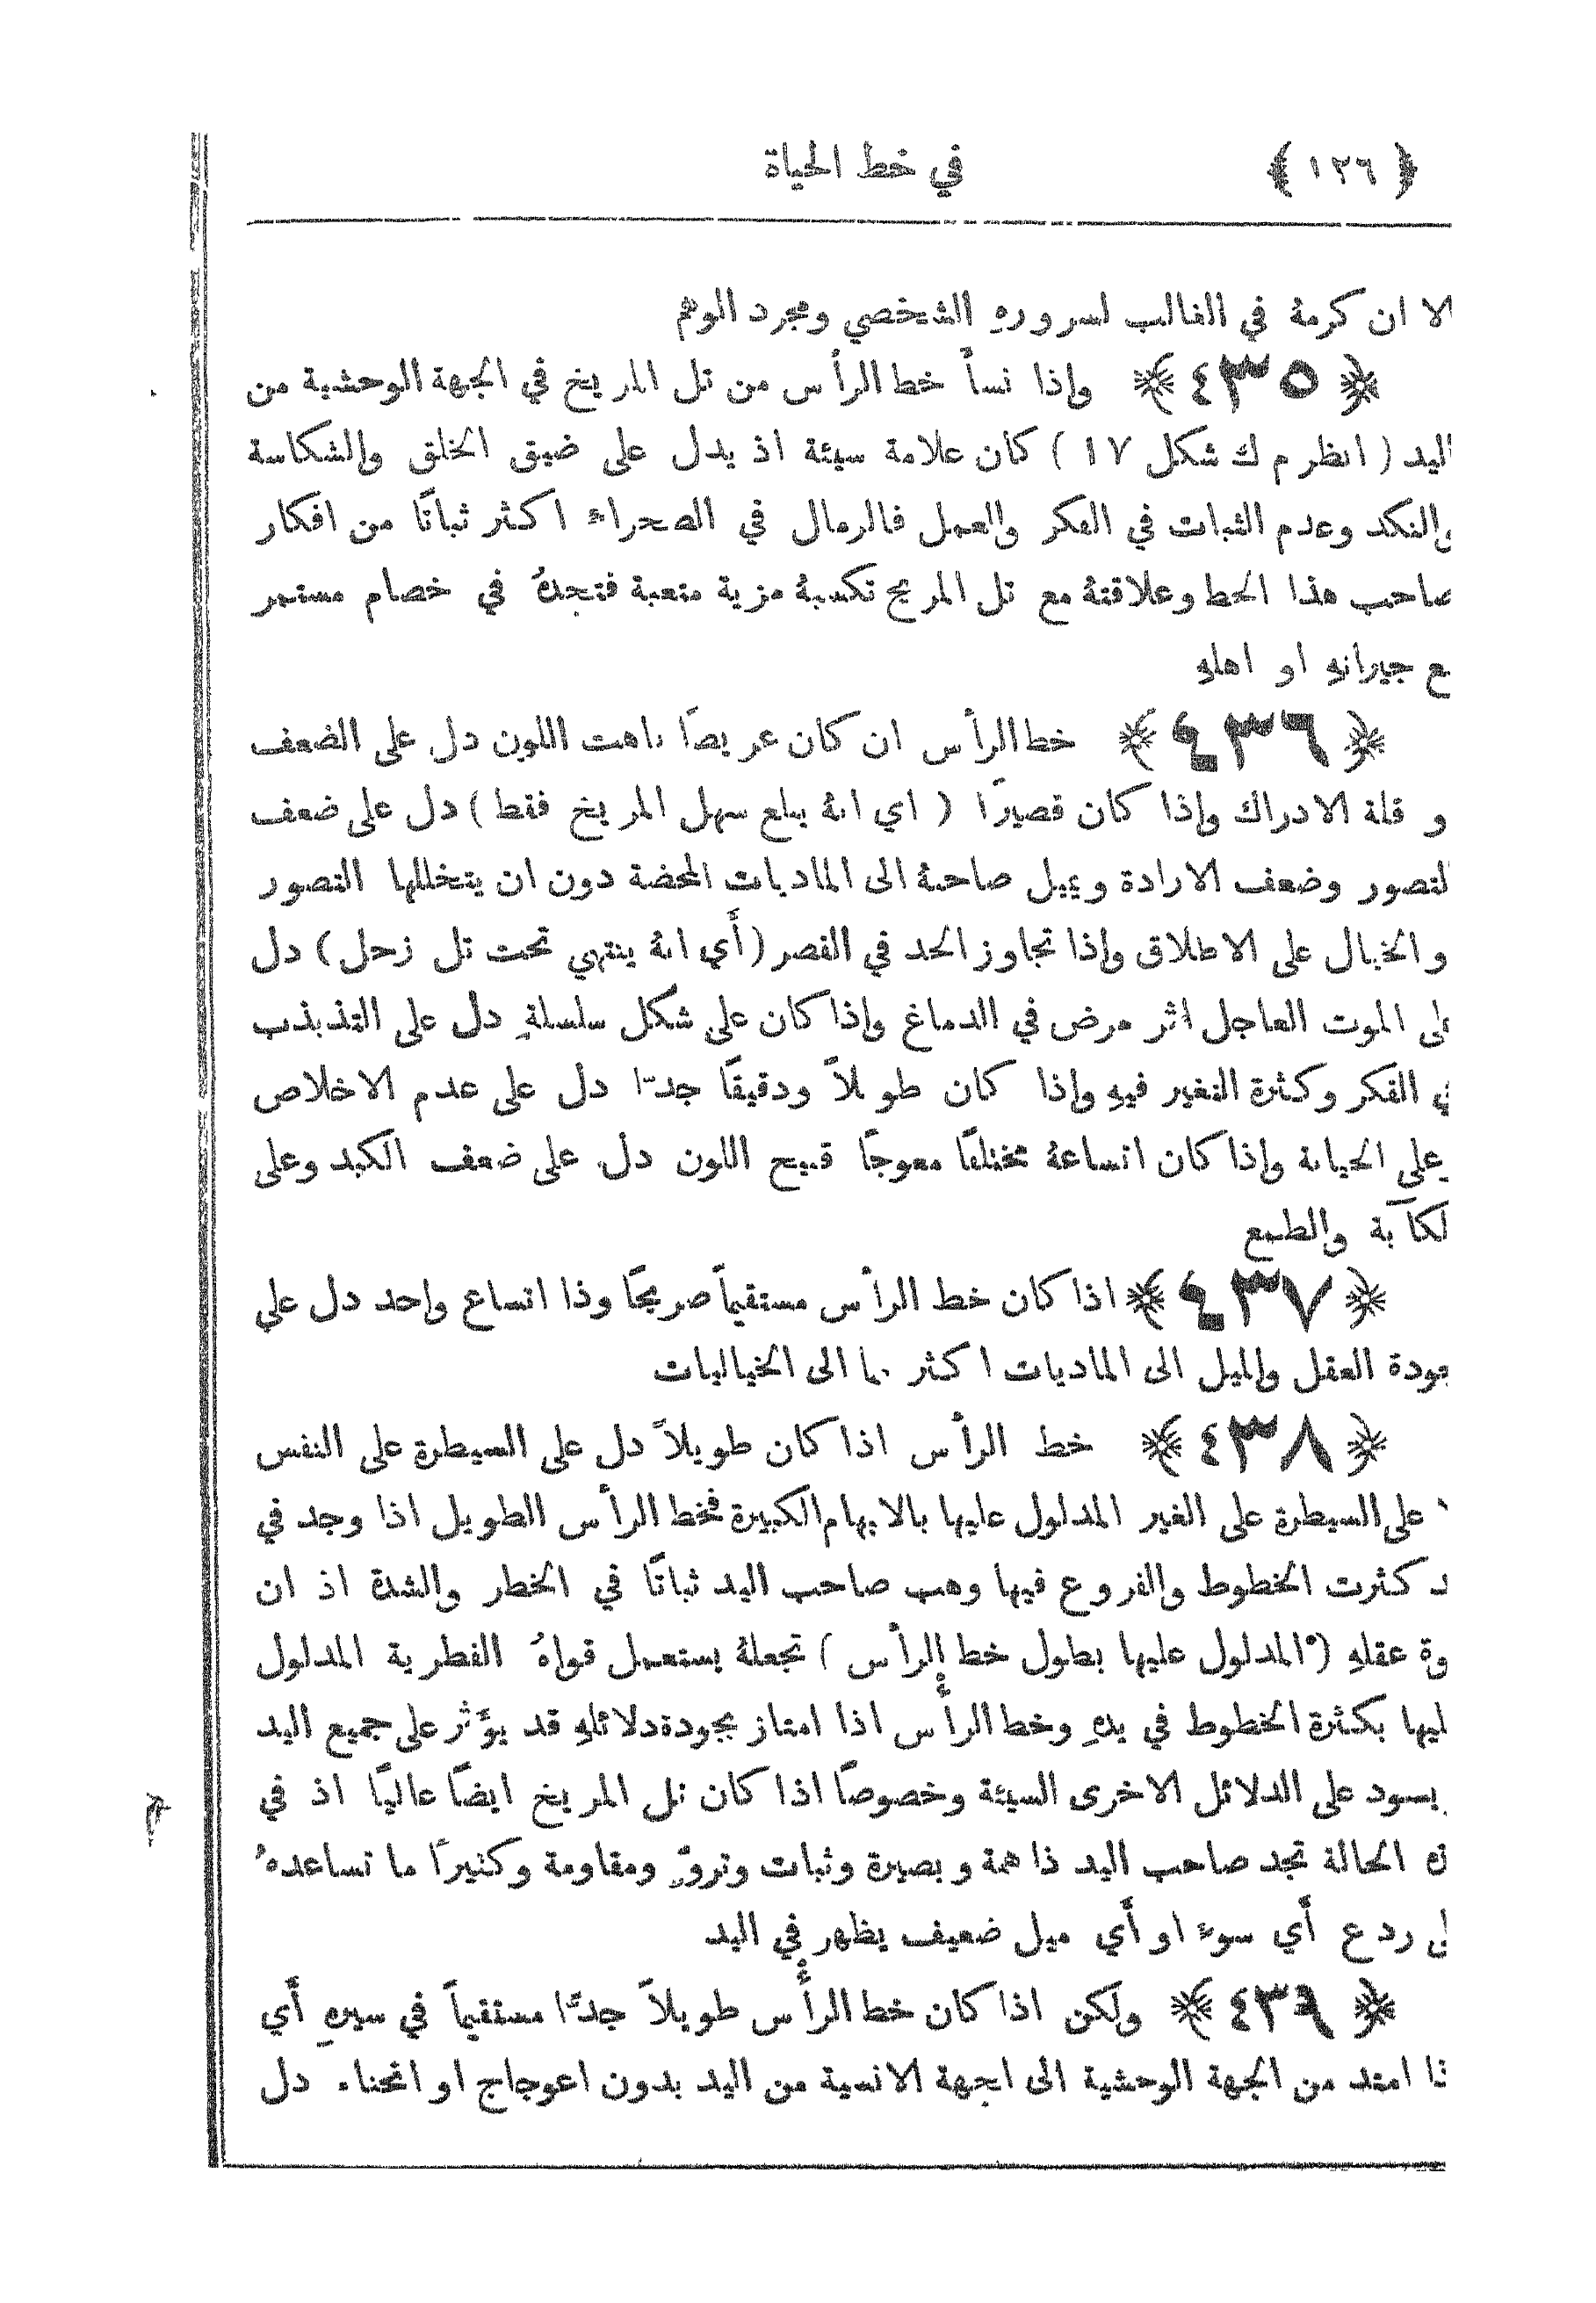 ﴿ ١٢٦ ﴾ في خط الحياة
الا ان كرمهُ في الغالب لسرورهِ الشخصي ومجرد الوهم
﴿ ٤٣٥ ﴾ واذا نسأ خط الرأس من تل المريخ في الجهة الوحشية من
اليد ( انظر م ك شكل ١٧ ) كان علامة سيئة اذ يدل على ضيق الخلق والشكاسة
والنكد وعدم الثبات في الفكر والعمل فالرمال في الصحراء اكثر ثباتًا من افكار
صاحب هذا الخط وعلاقتهُ مع تل المريخ تكسبهُ مزية متعبة فتجدهُ في خصام مستمر
مع جيرانهِ او اهلهِ
﴿ ٤٣٦ ﴾ خط الرأس ان كان عريضًا باهت اللون دل على الضعف
و قلة الادراك واذا كان قصيرًا ( اي انهُ يبلغ سهل المريخ فقط ) دل على ضعف
التصور وضعف الارادة ويميل صاحبهُ الى الماديات المحضة دون ان يتخللها التصور
و الخيال على الاطلاق واذا تجاوز الحد في القصر ( أي انهُ ينتهي تحت تل زحل ) دل
على الموت العاجل اثر مرض في الدماغ واذا كان على شكل سلسلةٍ دل على التذبذب
في الفكر وكثرة التغير فيهِ واذا كان طويلاً ودقيقًا جدًّا دل على عدم الاخلاص
وعلى الخيانة واذا كان اتساعهُ مختلفًا معوجًا قبيح اللون دل على ضعف الكبد وعلى
الكآبة والطمع
﴿ ٤٣٧ ﴾ اذا كان خط الرأس مستقيماً صريحًا وذا اتساع واحد دل على
جودة العقل والميل الى الماديات اكثر مما الى الخياليات
﴿ ٤٣٨ ﴾ خط الرأس اذا كان طويلاً دل على السيطرة على النفس
لا على السيطرة على الغير المدلول عليها بالابهام الكبيرة فخط الرأس الطويل اذا وجد في
يد كثرت الخطوط والفروع فيها وهب صاحب اليد ثباتًا في الخطر والشدة اذ ان
قوة عقلهِ ( المدلول عليها بطول خط الرأس ) تجعلهُ يستعمل قواهُ الفطرية المدلول
عليها بكثرة الخطوط في يدهِ وخط الرأس اذا امتاز بجودة دلائلهِ قد يؤَثر على جميع اليد
و يسود على الدلائل الاخرى السيئة وخصوصًا اذا كان تل المريخ ايضًا عاليًا اذ في
هذه الحالة تجد صاحب اليد ذا همة و بصيرة وثبات وتروٍّ ومقاومة وكثيرًا ما تساعدهُ
على ردع أَي سوءٍ او أَي ميل ضعيف يظهر في اليد
﴿ ٤٣٩ ﴾ ولكن اذا كان خط الرأس طويلاً جدًّا مستقيماً في سيرهِ أَي
اذا امتد من الجهة الوحشية الى الجهة الانسية من اليد بدون اعوجاج او انحناء دل